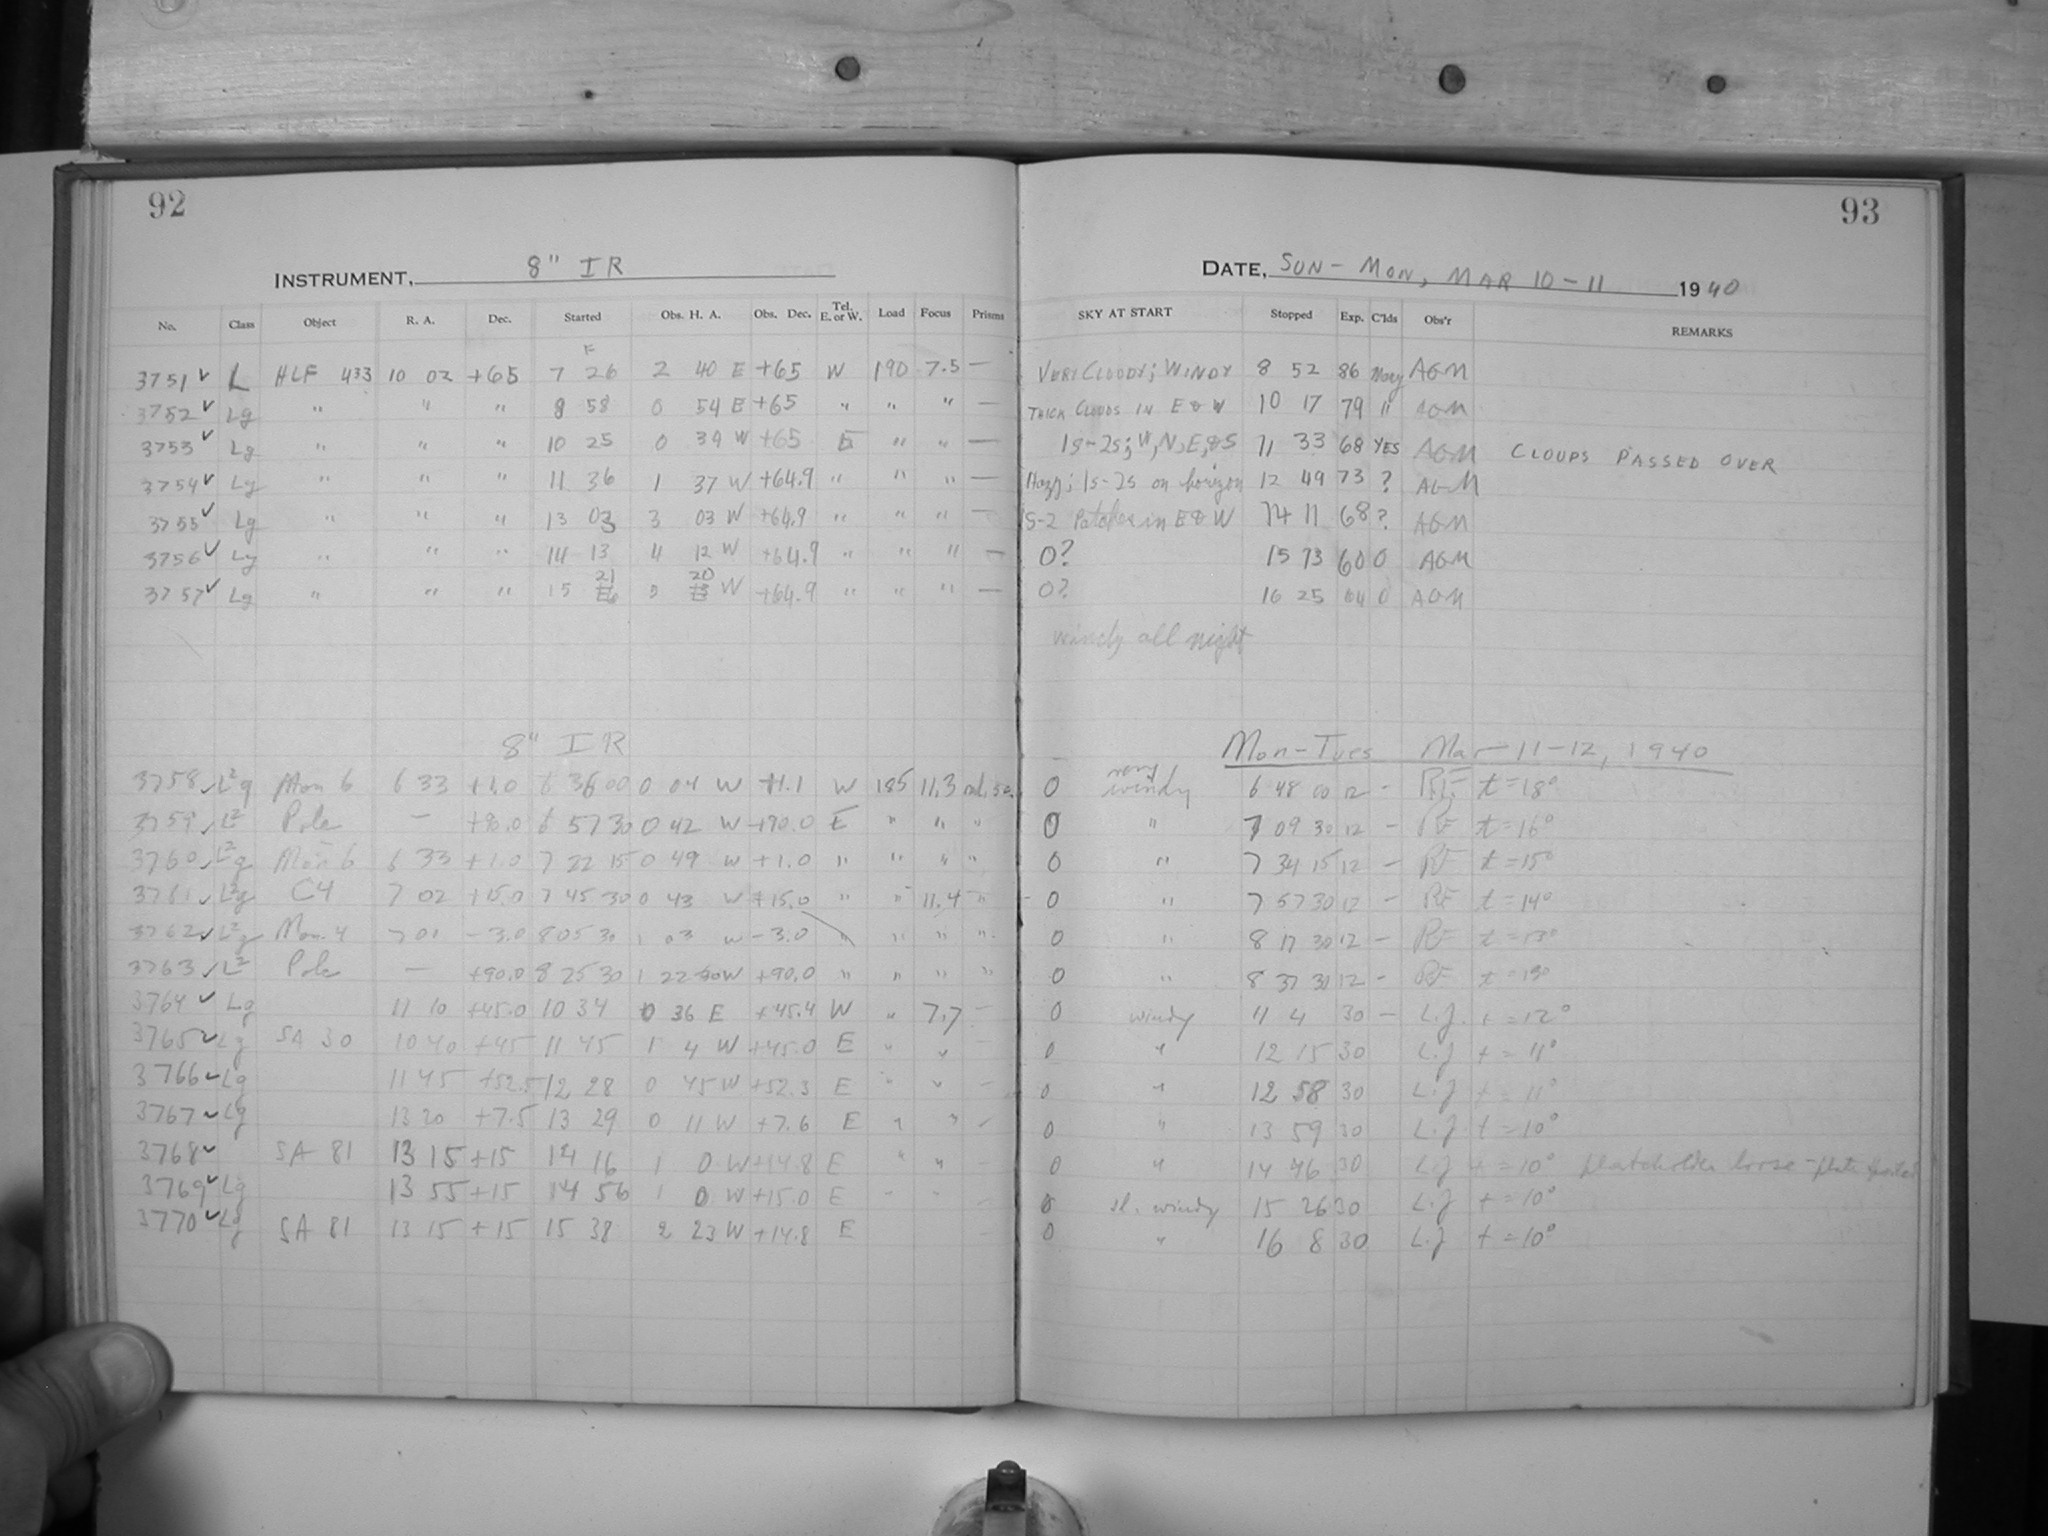 92
INSTRUMENT, 8" IR
No. Class Object R. A. Dec. Started Obs. H. A. Obs. Dec. Tel. E. or W. Load Focus Prisms
3751 ✓ L HLF 433 10 02 +65 7 26 2 40 E +65 W 190 7.5 —
3752 ✓ Lg " " " 8 58 0 54 E +65 " " " —
3753 ✓ Lg " " " 10 25 0 39 W +65 E " " —
3754 ✓ Lg " " " 11 36 1 37 W +64.9 " " " —
3755 ✓ Lg " " " 13 03 3 03 W +64.9 " " " —
3756 ✓ Lg " " " 14 13 4 12 W +64.9 " " " —
3757 ✓ Lg " " " 15 21 20 W +64.9 " " " —
8" IR
3758 ✓ L²g Mon 6 6 33 +1.0 6 36 00 0 04 W +1.1 W 185 11.3
3759 ✓ L² Pole — +90.0 6 57 30 0 42 W +90.0 E " " "
3760 ✓ L²g Mon 6 6 33 +1.0 7 22 15 0 49 W +1.0 " " " "
3761 ✓ L²g C4 7 02 +15.0 7 45 30 0 43 W +15.0 " " 11.4 "
3762 ✓ L²g Mon. 4 7 01 -3.0 8 05 30 1 03 W -3.0 " " " "
3763 ✓ L² Pole — +90.0 8 25 30 1 22 W +90.0 " " " "
3764 ✓ Lg 11 10 +45.0 10 34 0 36 E +45.4 W " 7.7 —
3765 ✓ Lg SA 30 10 40 +45 11 45 1 4 W +45.0 E " " —
3766 ✓ Lg 11 45 +52.5 12 28 0 45 W +52.3 E " " —
3767 ✓ Lg 13 20 +7.5 13 29 0 11 W +7.6 E " " —
3768 ✓ SA 81 13 15 +15 14 16 1 0 W +14.8 E " " —
3769 ✓ Lg 13 55 +15 14 56 1 0 W +15.0 E " " —
3770 ✓ Lg SA 81 13 15 +15 15 38 2 23 W +14.8 E
93
DATE, SUN - MON, MAR 10 - 11 1940
SKY AT START Stopped Exp. C'lds Obs'r REMARKS
VERY CLOUDY; WINDY 8 52 86 Many AGM
THICK CLOUDS IN E & W 10 17 79 " AGM
1s-2s; W, N, E, & S 11 33 68 YES AGM CLOUDS PASSED OVER
Hazy; 1s-2s on horizon 12 49 73 ? AGM
1s-2 Patches in E & W 14 11 68 ? AGM
0? 15 13 60 0 AGM
0? 16 25 64 0 AGM
windy all night
Mon-Tues Mar 11-12, 1940
0 very windy 6 48 00 12 - RF t=18°
0 " 7 09 30 12 - RF t=16°
0 " 7 34 15 12 - RF t=15°
0 " 7 57 30 12 - RF t=14°
0 " 8 17 30 12 - RF t=13°
0 " 8 37 30 12 - RF t=13°
0 windy 11 4 30 - L.J. t=12°
0 " 12 15 30 L.J t=11°
0 " 12 58 30 L.J t=11°
0 " 13 59 30 L.J. t=10°
0 " 14 46 30 L.J t=10° plateholder loose - plate
0 sl. windy 15 26 30 L.J t=10°
0 " 16 8 30 L.J t=10°